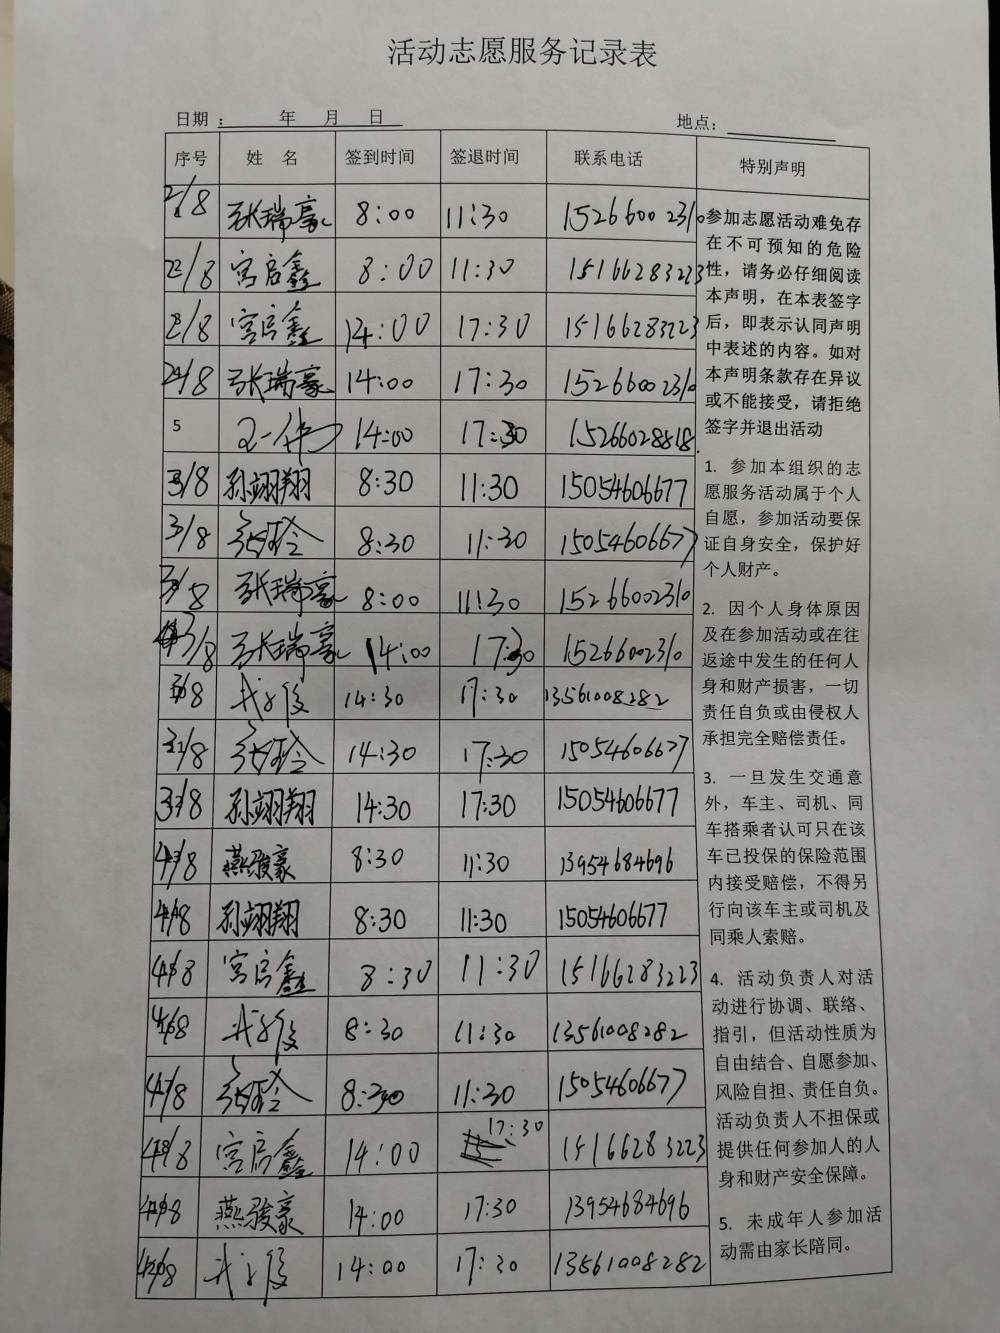 活动志愿服务记录表
日期： 年 月 日
地点：
序号 姓 名 签到时间 签退时间 联系电话 特别声明
2/8 张瑞豪 8:00 11:30 15266002310
2/8 宫启鑫 8:00 11:30 15166283223
2/8 宫启鑫 14:00 17:30 15166283223
2/8 张瑞豪 14:00 17:30 15266002310
5 14:00 17:30 15266028818
3/8 孙翊翔 8:30 11:30 15054606677
3/8 8:30 11:30 15054606677
3/8 张瑞豪 8:00 11:30 15266002310
3/8 张瑞豪 14:00 17:30 15266002310
3/8 14:30 17:30 13561008282
3/8 14:30 17:30 15054606677
3/8 孙翊翔 14:30 17:30 15054606677
4/8 燕骏豪 8:30 11:30 13954684696
4/8 孙翊翔 8:30 11:30 15054606677
4/8 宫启鑫 8:30 11:30 15166283223
4/8 8:30 11:30 13561008282
4/8 8:30 11:30 15054606677
4/8 宫启鑫 14:00 17:30 15166283223
4/8 燕骏豪 14:00 17:30 13954684696
4/8 14:00 17:30 13561008282
参加志愿活动难免存
在不可预知的危险
性，请务必仔细阅读
本声明，在本表签字
后，即表示认同声明
中表述的内容。如对
本声明条款存在异议
或不能接受，请拒绝
签字并退出活动
1. 参加本组织的志
愿服务活动属于个人
自愿，参加活动要保
证自身安全，保护好
个人财产。
2. 因个人身体原因
及在参加活动或在往
返途中发生的任何人
身和财产损害，一切
责任自负或由侵权人
承担完全赔偿责任。
3. 一旦发生交通意
外，车主、司机、同
车搭乘者认可只在该
车已投保的保险范围
内接受赔偿，不得另
行向该车主或司机及
同乘人索赔。
4. 活动负责人对活
动进行协调、联络、
指引，但活动性质为
自由结合、自愿参加、
风险自担、责任自负。
活动负责人不担保或
提供任何参加人的人
身和财产安全保障。
5. 未成年人参加活
动需由家长陪同。